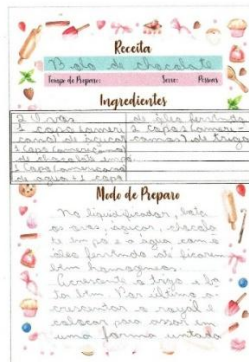 Receita
Bolo de chocolate
Tempo de Preparo: Serve: Pessoas
Ingredientes
2 Ovos
1 copo (ameri
cano) de açúcar
1 copo (americano)
de chocolate em pó
1 copo (americano)
de água + 1 copo
de óleo fervendo
2 copos (ameri
canos) de trigo
Modo de Preparo
No liquidificador, bata
os ovos, açúcar, chocola
te em pó e água com o
óleo fervendo até ficarem
bem homogêneos.
Acrescente o trigo e ba
ta bem. Por último a
crescentar o royal e
colocar para assar em
uma forma untada